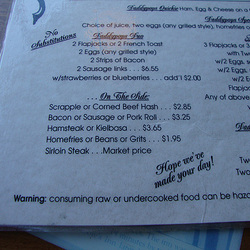 Daddypops Quickie Ham, Egg & Cheese on a
Choice of juice, two eggs (any grilled style), homefries or
No Substitutions
Daddypops Duo
2 Flapjacks or 2 French Toast
2 Eggs (any grilled style)
2 Strips of Bacon
2 Sausage links . . . $6.55
w/strawberries or blueberries . . . add'l $2.00
3 Flapjacks or 3
with Two
w/2 Eggs
w/2 Eggs
Flapjac
Any of above
...On The Side
Scrapple or Corned Beef Hash . . . $2.85
Bacon or Sausage or Pork Roll . . . $3.25
Hamsteak or Kielbasa . . . $3.65
Homefries or Beans or Grits . . . $1.95
Sirloin Steak . . . Market price
Hope we've
made your day!
Two
Two
Warning: consuming raw or undercooked food can be haza